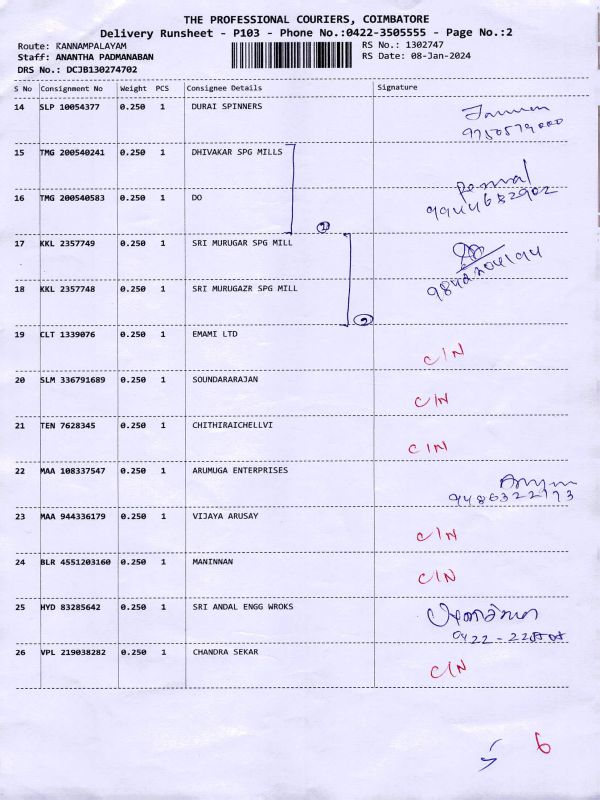 THE PROFESSIONAL COURIERS, COIMBATORE
Delivery Runsheet - P103 - Phone No.:0422-3505555 - Page No.:2
Route: KANNAMPALAYAM RS No.: 1302747
Staff: ANANTHA PADMANABAN RS Date: 08-Jan-2024
DRS No.: DCJB130274702
S No Consignment No Weight PCS Consignee Details Signature
14 SLP 10054377 0.250 1 DURAI SPINNERS
9750579000
15 TMG 200540241 0.250 1 DHIVAKAR SPG MILLS
16 TMG 200540583 0.250 1 DO
9944682902
2
17 KKL 2357749 0.250 1 SRI MURUGAR SPG MILL
18 KKL 2357748 0.250 1 SRI MURUGAZR SPG MILL
9842204194
2
19 CLT 1339076 0.250 1 EMAMI LTD
C/N
20 SLM 336791689 0.250 1 SOUNDARARAJAN
C/N
21 TEN 7628345 0.250 1 CHITHIRAICHELLVI
C/N
22 MAA 108337547 0.250 1 ARUMUGA ENTERPRISES
9486322173
23 MAA 944336179 0.250 1 VIJAYA ARUSAY
C/N
24 BLR 4551203160 0.250 1 MANINNAN
C/N
25 HYD 83285642 0.250 1 SRI ANDAL ENGG WROKS
26 VPL 219038282 0.250 1 CHANDRA SEKAR
C/N
6